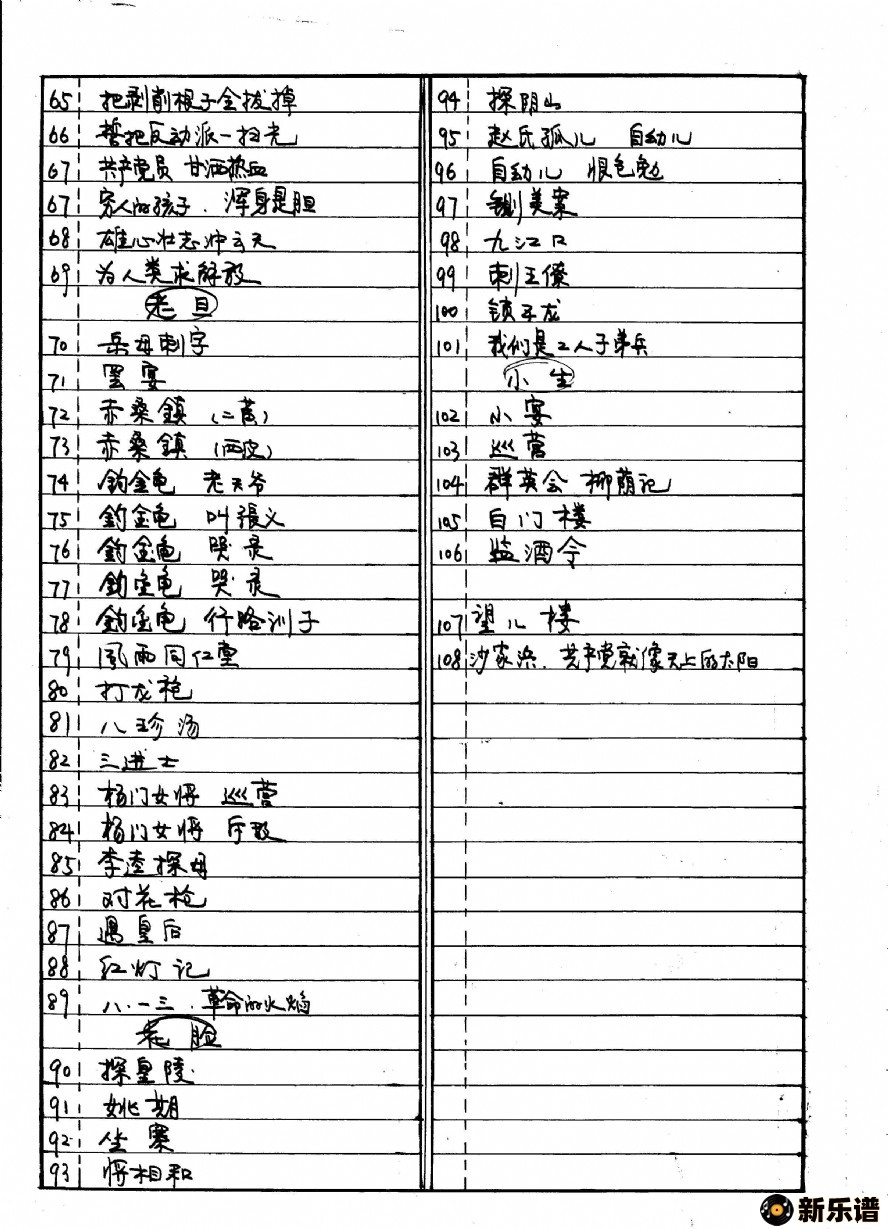 65 把剥削根子全拔掉
66 誓把反动派一扫光
67 共产党员 甘洒热血
67 穷人的孩子. 浑身是胆
68 雄心壮志冲云天
69 为人类求解放
老旦
70 岳母刺字
71 罢宴
72 赤桑鎮 (二黄)
73 赤桑鎮 (西皮)
74 釣金龟 老天爷
75 釣金龟 叫張义
76 釣金龟 哭灵
77 釣金龟 哭灵
78 釣金龟 行路训子
79 風雨同仁堂
80 打龙袍
81 八珍汤
82 三进士
83 杨门女将 巡营
84 杨门女将
85 李逵探母
86 对花枪
87 遇皇后
88 红灯记
89 八.一三.革命的火焰
花脸
90 探皇陵
91 姚期
92 坐寨
93 将相和
94 探阴山
95 赵氏孤儿 自幼儿
96 自幼儿
97 铡美案
98 九江口
99 刺王僚
100 锁五龙
101 我们是工人子弟兵
小生
102 小宴
103 巡营
104 群英会 柳荫记
105 白门楼
106 监酒令
107 望儿楼
108 沙家浜.共产党就像天上的太阳
新乐谱